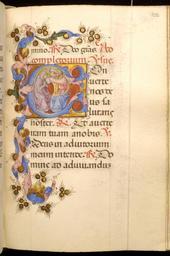 mino. R. Deo gr̃as. Ad
completorium. Vſ̃uc.
Con
uerte
nos de
us ſa
lutaris
noſter. R. Et auerte
iram tuam a nobis. V.
Deus in adiutorium
meum intende. R. Do
mine ad adiuuandus